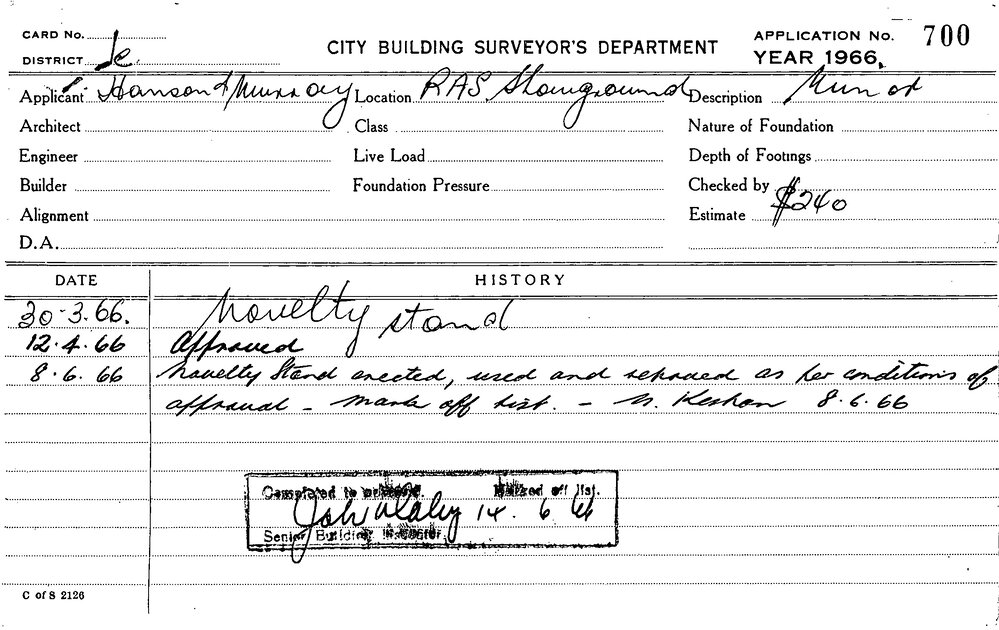 CARD No.
CITY BUILDING SURVEYOR'S DEPARTMENT
APPLICATION No. 700
DISTRICT
YEAR 1966.
Applicant Hanson & Murray Location RAS Showground Description Minor
Architect Class Nature of Foundation
Engineer Live Load Depth of Footings
Builder Foundation Pressure Checked by
Alignment Estimate $240
D.A.
DATE HISTORY
30-3.66. Novelty stand
12.4.66 Approved
8.6.66 Novelty Stand erected, used and removed as per conditions of
approval - Mark off list. - 8.6.66
Completed to Marked off list.
14.6.66
Senior Building Inspector
C of S 2126